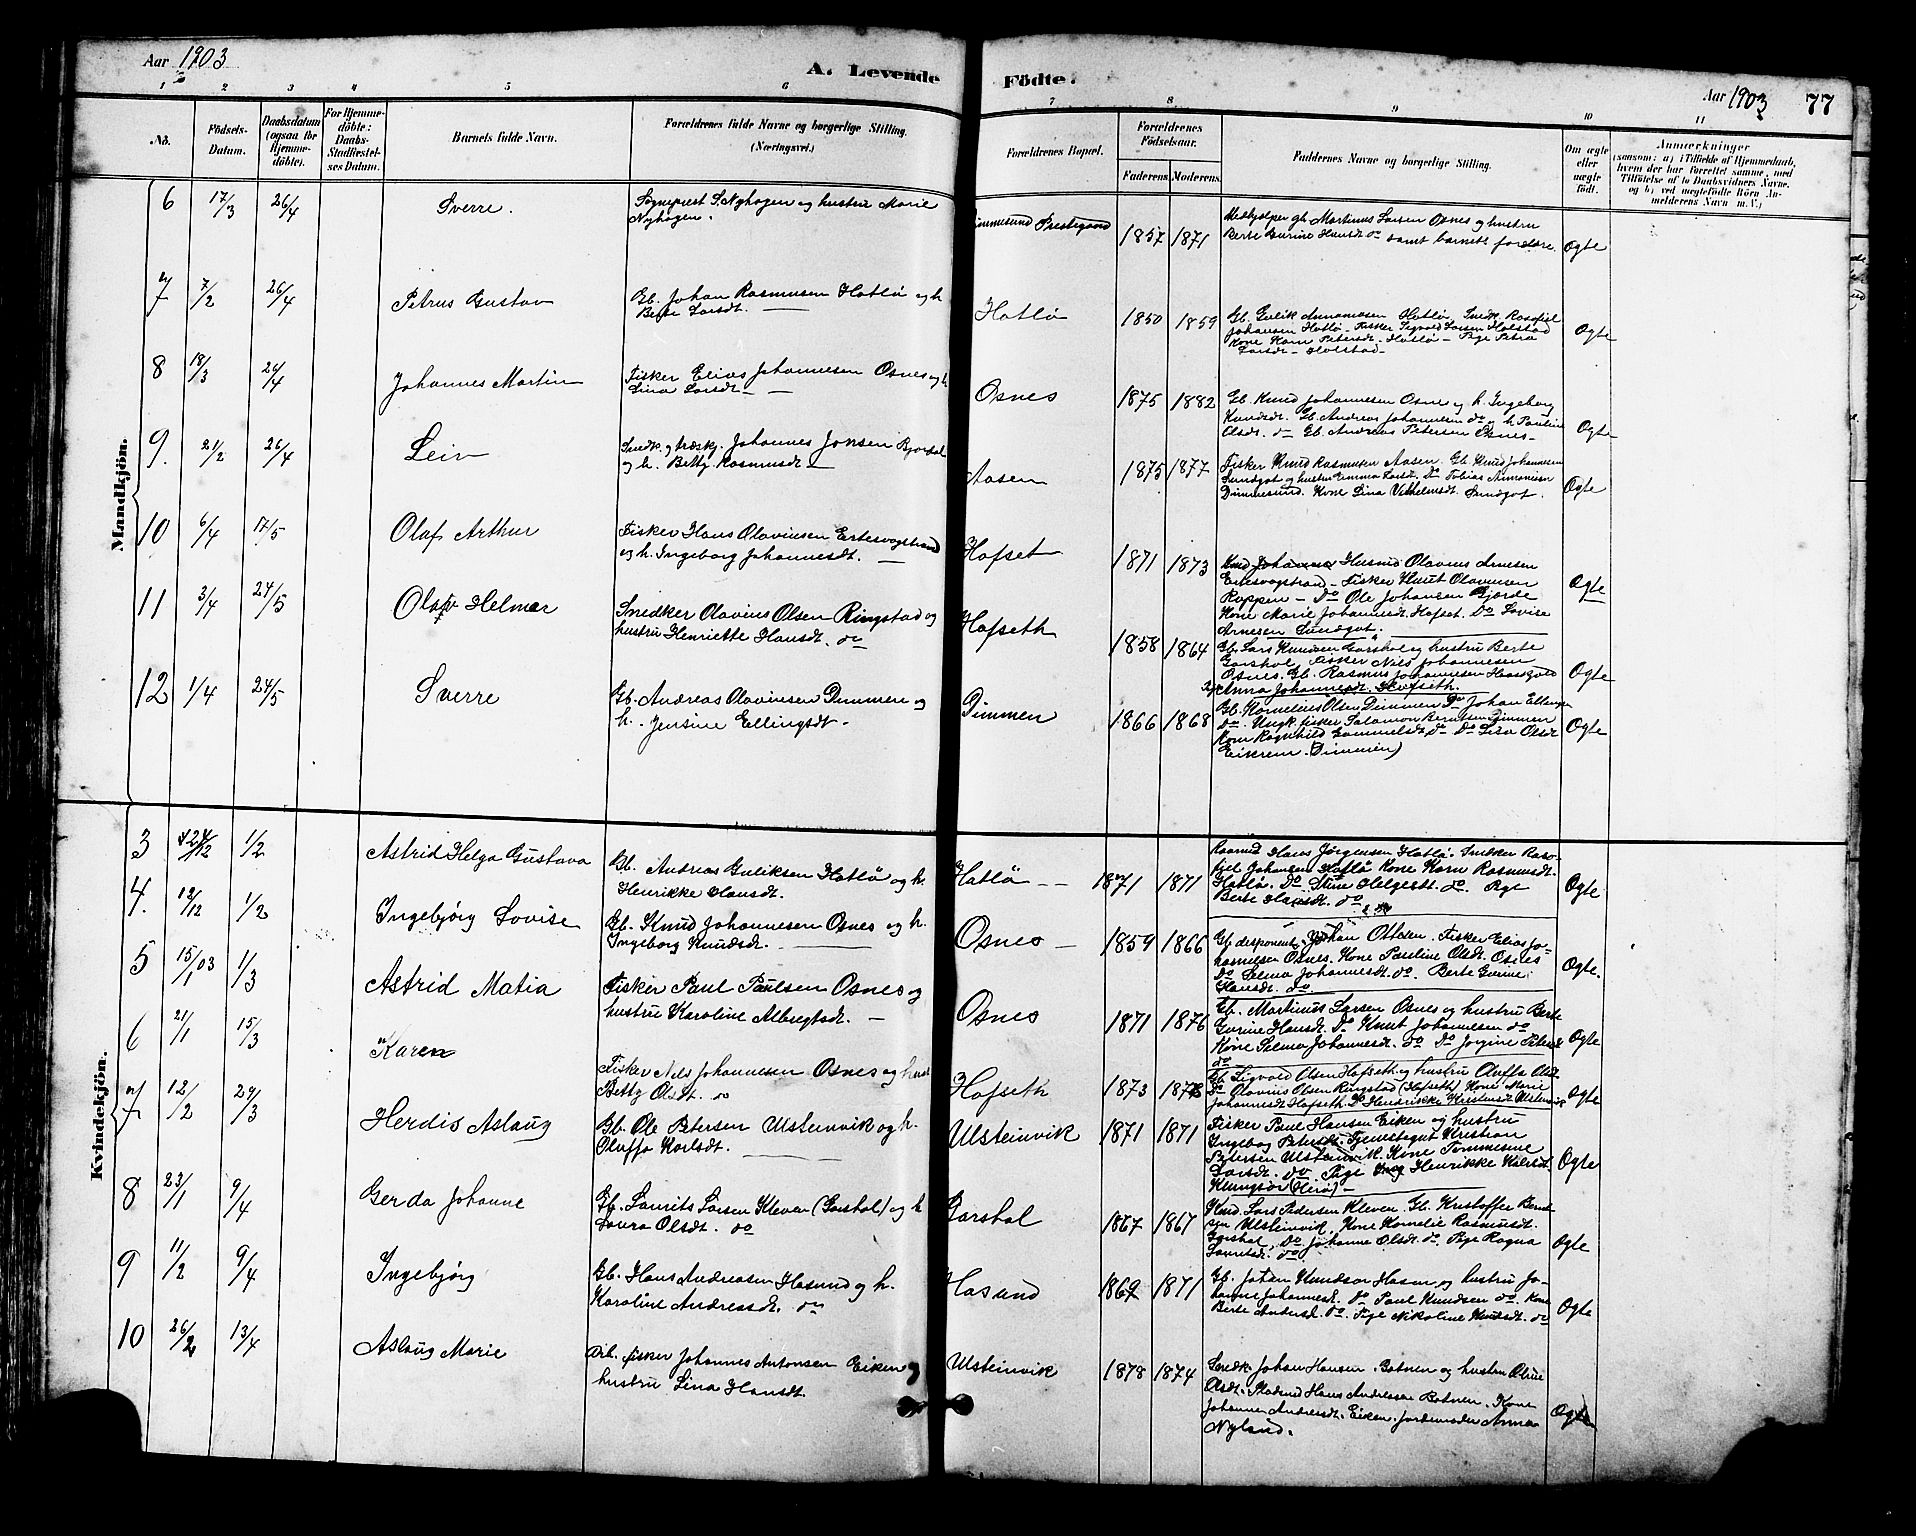 Aar 1903
A. Levende
Födte.
Aar 1903
77
1 2 3 4 5 6 7 8 9 10 11
No.
Födsels-
Datum.
Daabsdatum
(ogsaa for
Hjemme-
döbte).
For Hjemme-
döbte:
Daabs-
Stadfæstel-
ses Datum.
Barnets fulde Navn.
Forældrenes fulde Navne og borgerlige Stilling.
(Næringsvei.)
Forældrenes Bopæl.
Forældrenes
Födselsaar.
Faderens. Moderens.
Faddernes Navne og borgerlige Stilling.
Om ægte
eller
uægte
födt.
Anmærkninger
(saasom: a) i Tilfælde af Hjemmedaab,
hvem der har forrettet samme, med
Tilföielse af to Daabsvidners Navne,
og b) ved uægtefödte Börn An-
melderens Navn m. V.)
Mandkjön.
6 17/3 26/4 Sverre.
Sogneprest S. Nyhagen og hustru Marie
Nyhagen.
Dimmesund Prestegaard 1857 1871
Medhjelper gb. Martinus Larsen Osnes og hustru
Berte Gurine Hansdt. do samt barnets foreldre. Ogte
7 7/2 26/4 Petrus Gustav
Gb. Johan Rasmusen Hatlø og h.
Berte Larsdt.
Hatlø 1850 1859
Gb. Gulik Hatlø. Snedk. Rasofiel
Johansen Hatlø - Fisker Sigvald Larsen Holstad
Kone Karn Petersdt. Hatlø - Pige Petra
Larsdt - Holstad - Ogte
8 18/3 26/4 Johannes Martin
Fisker Elias Johannesen Osnes og h.
Lina Larsdt -
Osnes 1875 1882
Gb. Knud Johannesen Osne og h. Ingeborg
Knudsdt. Gb. Andreas Johannesen do og h. Pauline
Olsdt. do Gb. Andreas Petersen Osnes - Ogte
9. 21/2 26/4 Leiv
Snedk. og træskj. Johannes Jonsen Bjordal
og h. Betty Rasmusdt -
Aasen 1875 1877
Fisker Knud Rasmusen Aasen. Gb. Knud Johannesen
Sundgot og hustru Emma Larsdt. Do Tobias
Dimmesund. Kone Lina Vilhelmsdt. Sundgot. Ogte
10 6/4 17/5 Olaf Arthur
Fisker Hans Olavinsen Ertesvogstrand
og h. Ingeborg Johannesdt. -
Hofset 1871 1873
Husmd Olavus Arnesen
Ertesvogstrand - Fisker Knut Olavinsen
Roppen - Do Ole Johansen Gjerde
Kone Marie Johannesdt Hofset. Do Lovise
Arnesen Sundgot. Ogte
11 3/4 24/5 Olav Helmer
Snedker Olavius Olsen Ringstad og
hustru Henriette Hansdt. do
Hofseth 1858 1864
Gb. Lars Knudsen Garshol og hustru Berte
Garshol, Fisker Nils Johannesen
Osnes. Gb. Rasmus Johannesen
Pige Anna Johannesdt. Hofseth. Ogte
12 1/4 24/5 Sverre
Gb. Andreas Olavinsen Dimmen og
h. Jensine Ellingsdt.
Dimmen 1866 1868
Gb. Kornelius Olsen Dimmen Do Johan Ellingsen
Do. Ungk. fisker Salamon Berntsen Dimmen
Kone Ragnhild do Do Lisa Olsdt
Eikrem. (Dimmen) Ogte
Kvindekjön.
3 24/12 1/2 Astrid Helga Gustava
Gb. Andreas Guliksen Hatlø og h.
Henrikke Hansdt.
Hatlø - - 1871 1871
Hans Jørgensen Hatlø. Snedker Raso-
fiel Johansen Hatlø Kone Karn Rasmusdt.
Hatlø. Do. Stine Helgesdt. do. Pige
Berte Hansdt. do Ogte
4. 12/12 1/2 Ingebjørg Lovise
Gb. Knud Johannesen Osnes og h.
Ingeborg Knudsdt.
Osnes - 1859 1866
Gb. disponent Johan Ottesen. Fisker Elias Jo-
hannesen Osnes. Kone Pauline Olsdt. Osnes -
Do Selma Johannesdt. do. Berte Gurine
Hansdt. do. Ogte.
5 15/1 03 1/3 Astrid Matia
Fisker Paul Paulsen Osnes og
hustru Karoline Albregtsdt. -
Osnes 1871 1876
Gb. Martinus Larsen Osnes og hustru Berte
Gurine Hansdt. Do Knut Johannesen do
Kone Selma Johannesdt. do Do Jorgine Petersdt
do Ogte
6 21/1 15/3 Karen
Fisker Nils Johannesen Osnes og hust
Betty Olsdt. do
Hofseth 1873 1878
Gb. Sigvald Olsen Hofseth og hustru Oluffa Olsdt
Do Olavius Olsen Ringstad (Hofseth) Kone Marie
Johannesdt Hofseth. Do Hendrikke Kristensdt Ulstenvik Ogte
7 12/2 29/3 Herdis Aslaug
Gb. Ole Petersen Ulsteinvik og h.
Oluffa Karlsdt.
Ulsteinvik 1871 1871
Fisker Paul Hansen Eiken og hustru
Ingebog Petersdt. Tjenestegut Kristian
Petersen Ulsteinvik. Kone Tommesine
Larsdt. do. Pige Henrikke
Klungsør (Herø) - Ogte
8 23/1 9/4 Gerda Johanne
Gb. Laurits Larsen Kleven (Garshol) og h
Laura Olsdt. do
Garshol 1867 1867
Kmd. Lars Pedersen Kleven. Gb. Kristoffer Bernt-
sen Ulsteinvik, Kone Kornelie Rasmusdt.
Garshol, Do. Johanne Olsdt. do. Pige Ragna
Lauritsdt. do. Ogte
9 11/2 9/4 Ingebjørg
Gb. Hans Andreasen Hasund og h.
Karoline Andreasdt. do
Hasund 1862 1871
Gb. Johan Knudsen Hasun og hustru Jo-
hanne Johannesdt. Do Paul Knudsen do. Kone
Berte Andersdt. do. Pige Nikoline Knudsdt. do Ogte
10 26/2 13/4 Aslaug Marie
Dib. fisker Johannes Antonsen Eiken og
hustru Lina Hansdt.
Ulsteinvik 1878 1874
Snedk. Johan Hansen. Botnen og hustru Oline
Olsdt. Hans Andreasen Botnen. Kone
Johanne Andreasdt. Eiken. Jordemoder Anna
Nyland. Ogte